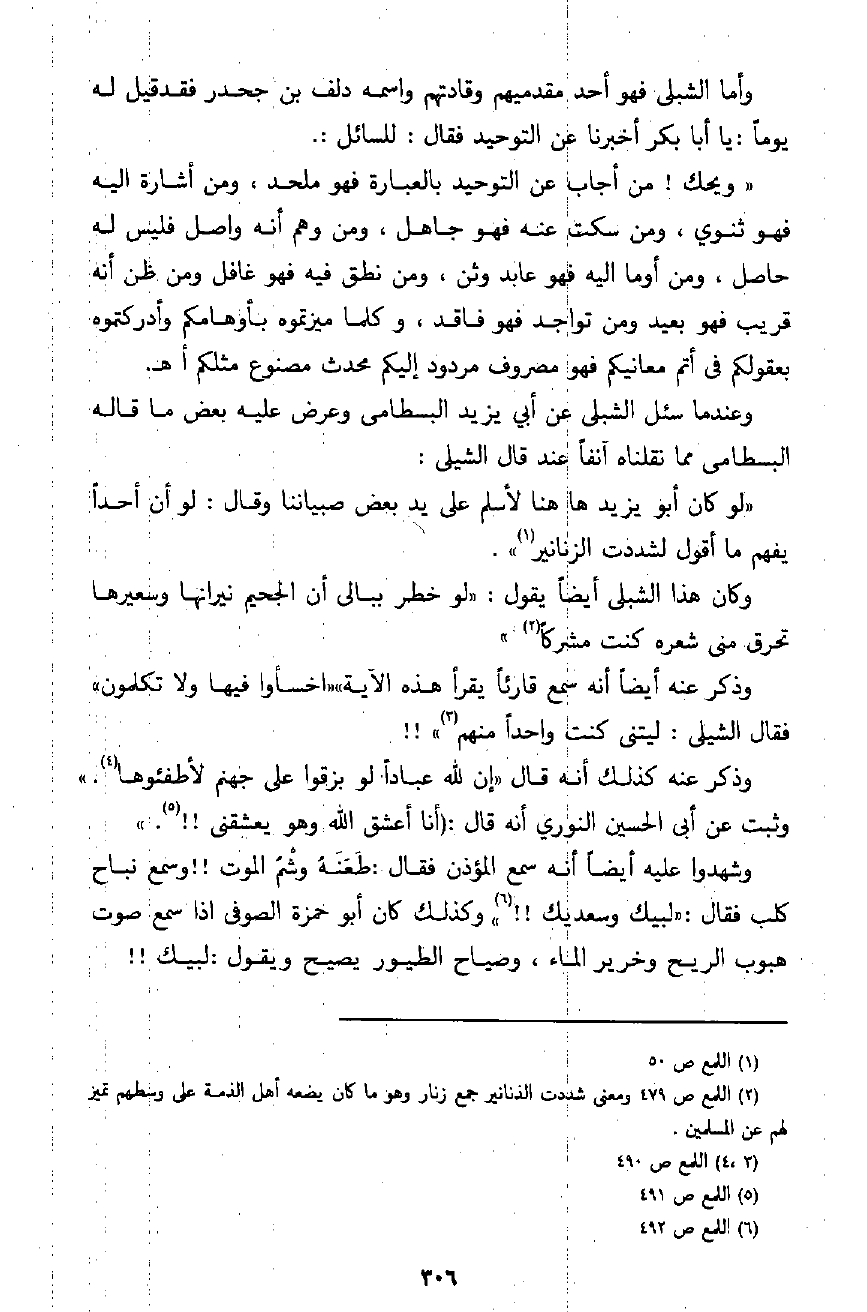 وأما الشبلى فهو أحد مقدميهم وقادتهم واسمه دلف بن جحدر فقدقيل له
يوماً :يا أبا بكر أخبرنا عن التوحيد فقال : للسائل :.
« ويحك ! من أجاب عن التوحيد بالعبارة فهو ملحد ، ومن أشارة اليه
فهو ثنوي ، ومن سكت عنه فهو جاهل ، ومن وهم أنه واصل فليس له
حاصل ، ومن أوما اليه فهو عابد وثن ، ومن نطق فيه فهو غافل ومن ظن أنه
قريب فهو بعيد ومن تواجد فهو فاقد ، و كلما ميزتموه بأوهامكم وأدركتموه
بعقولكم فى أتم معانيكم فهو مصروف مردود إليكم محدث مصنوع مثلكم أ هـ.
وعندما سئل الشبلى عن أبي يزيد البسطامى وعرض عليه بعض ما قاله
البسطامى مما نقلناه آنفاً عند قال الشيلى :
«لو كان أبو يزيد ها هنا لأسلم على يد بعض صبياننا وقال : لو أن أحداً
يفهم ما أقول لشددت الزنانير(١)» .
وكان هذا الشبلى أيضاً يقول : «لو خطر ببالى أن الجحيم نيرانها وسعيرها
تحرق منى شعره كنت مشركاً(٢) »
وذكر عنه أيضاً أنه سمع قارئاً يقرأ هذه الآية»«اخسأوا فيها ولا تكلمون»
فقال الشيلى : ليتنى كنت واحداً منهم(٣)» !!
وذكر عنه كذلك أنه قال «إن لله عباداً لو بزقوا على جهنم لأطفئوها(٤). »
وثبت عن أبى الحسين النوري أنه قال :(أنا أعشق الله وهو يعشقنى !!(٥). »
وشهدوا عليه أيضاً أنه سمع المؤذن فقال :طَعَنَهُ وشْمُ الموت !!وسمع نباح
كلب فقال :«لبيك وسعديك !!(٦)» وكذلك كان أبو حمزة الصوفى اذا سمع صوت
هبوب الريح وخرير الماء ، وصياح الطيور يصيح ويقول :لبيك !!
(١) اللمع ص ٥٠
(٢) اللمع ص ٤٧٩ ومعنى شددت الذنانير جمع زنار وهو ما كان يضعه أهل الذمة على وسطهم تميز
لهم عن المسلمين .
(٣ ،٤) اللمع ص ٤٩٠
(٥) اللمع ص ٤٩١
(٦) اللمع ص ٤٩٢
٣٠٦